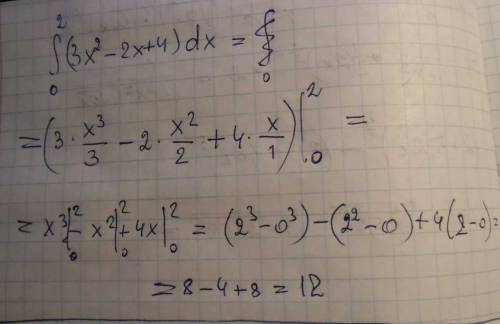 ∫₀² (3x² − 2x + 4) dx =
= (3 · x³/3 − 2 · x²/2 + 4 · x/1) |₀² =
= x³|₀² − x²|₀² + 4x|₀² = (2³ − 0³) − (2² − 0) + 4(2 − 0) =
= 8 − 4 + 8 = 12